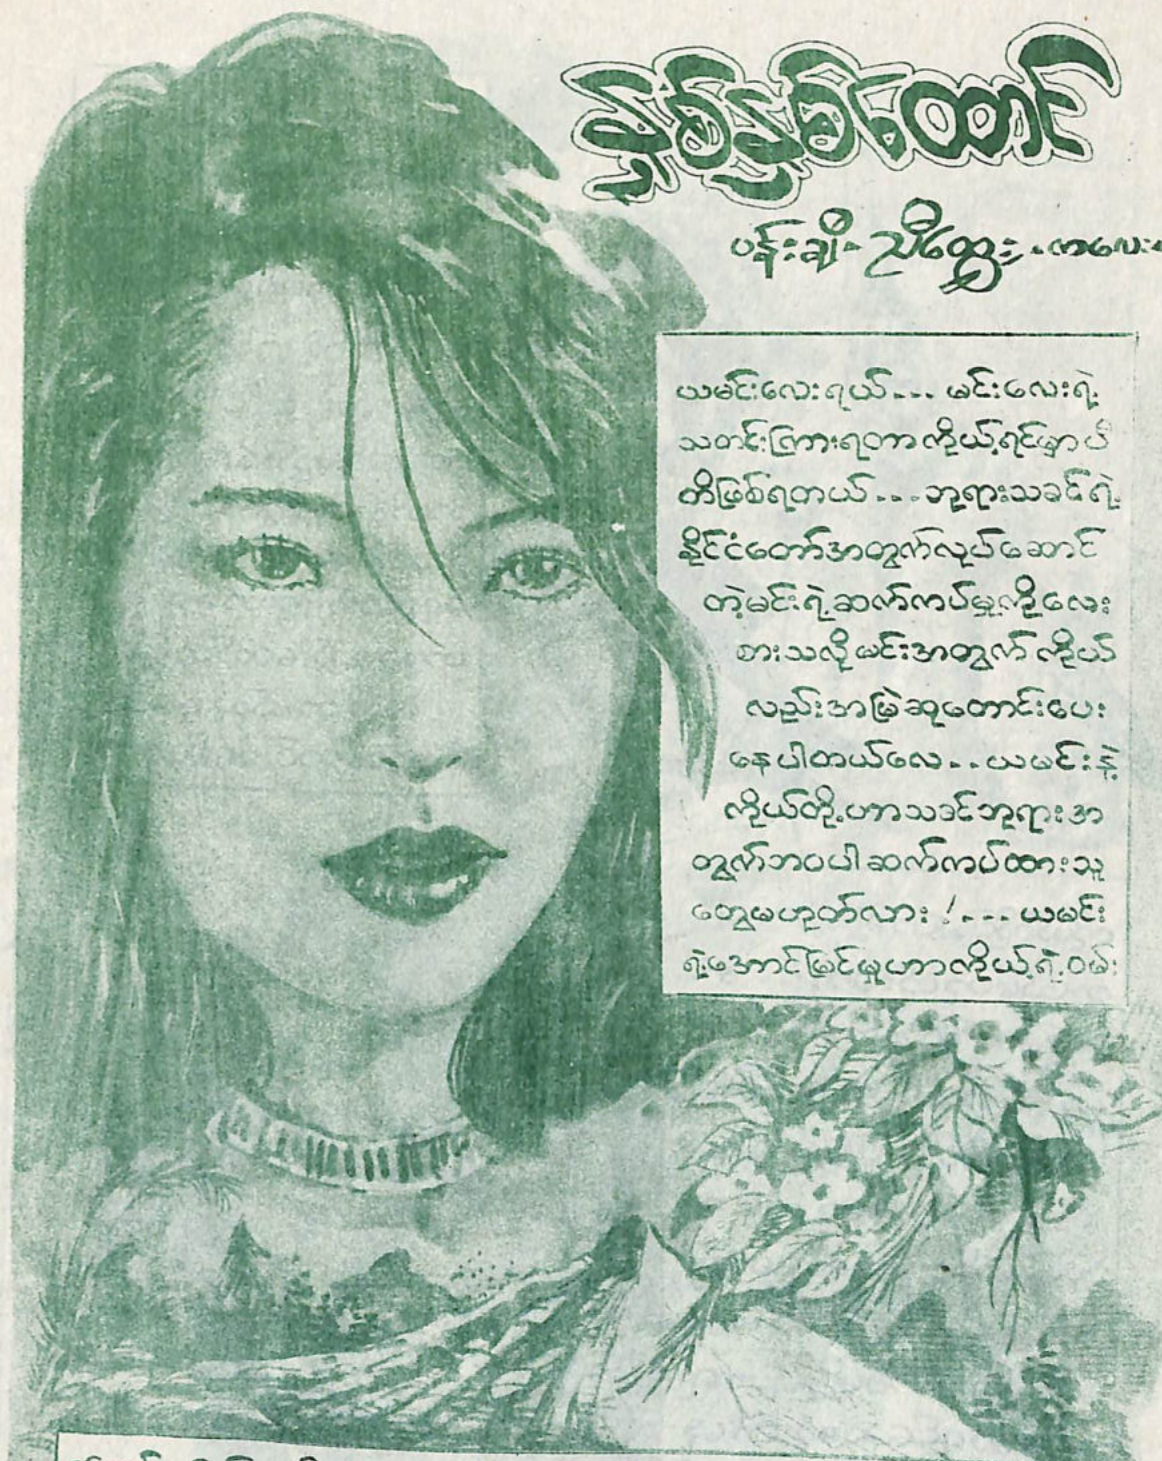 နှစ်နှစ်ထောင်
ပန်းချီ- ညီထွေး..ကလေး
ယမင်းလေးရယ်... မင်းလေးရဲ့
သတင်းကြားရတာ ကိုယ့်ရင်မှာပီ
တိဖြစ်ရတယ်...ဘုရားသခင်ရဲ့
နိုင်ငံတော်အတွက်လုပ်ဆောင်
တဲ့မင်းရဲ့ဆက်ကပ်မှုကိုလေး
စားသလို မင်းအတွက် ကိုယ်
လည်းအမြဲဆုတောင်းပေး
နေပါတယ်လေ..ယမင်းနဲ့
ကိုယ်တို့ဟာသခင်ဘုရားအ
တွက်ဘဝပါဆက်ကပ်ထားသူ
တွေမဟုတ်လား !... ယမင်း
ရဲ့အောင်မြင်မှုဟာကိုယ့်ရဲ့ဝမ်း